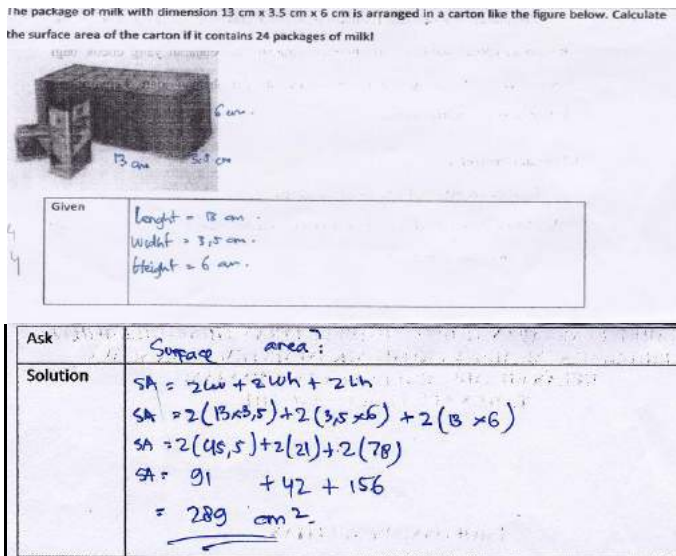 The package of milk with dimension 13 cm x 3.5 cm x 6 cm is arranged in a carton like the figure below. Calculate
the surface area of the carton if it contains 24 packages of milk!
6 cm.
13 cm
3.5 cm
Given
Lenght = 13 cm.
Widht = 3,5 cm.
Height = 6 cm.
Ask
Surface area?
Solution
SA = 2lw + 2wh + 2lh
SA = 2(13x3,5)+2(3,5x6) + 2(13 x6)
SA = 2(45,5)+2(21)+2(78)
SA = 91 + 42 + 156
= 289 cm2.